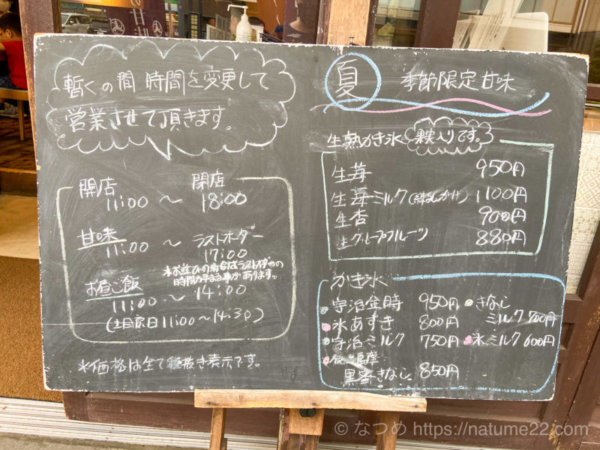 暫くの間 時間を変更して
営業させて頂きます。
開店 閉店
11:00 〜 18:00
甘味 ラストオーダー
11:00 〜 17:00
お昼ご飯
11:00 〜 14:00
(土日祭日11:00〜14:30)
*価格は全て税抜き表示です。
夏 季節限定甘味
生熟かき氷 果実入りです
生苺 950円
生苺ミルク 1100円
生杏 900円
生グレープフルーツ 880円
かき氷
宇治金時 950円
氷あずき 800円
宇治ミルク 750円
黒蜜きなし 850円
きなし
ミルク 700円
氷ミルク 600円
© なつめ https://natume22.com/